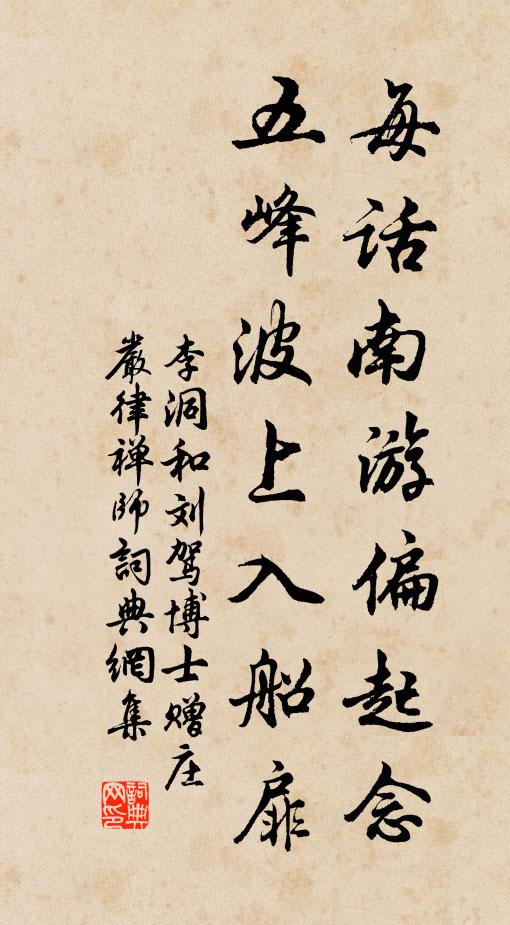 每话南游偏起念
五峰波上入船扉
李洞和刘驾博士赠庄
严律禅师詞典網集
詞典网印